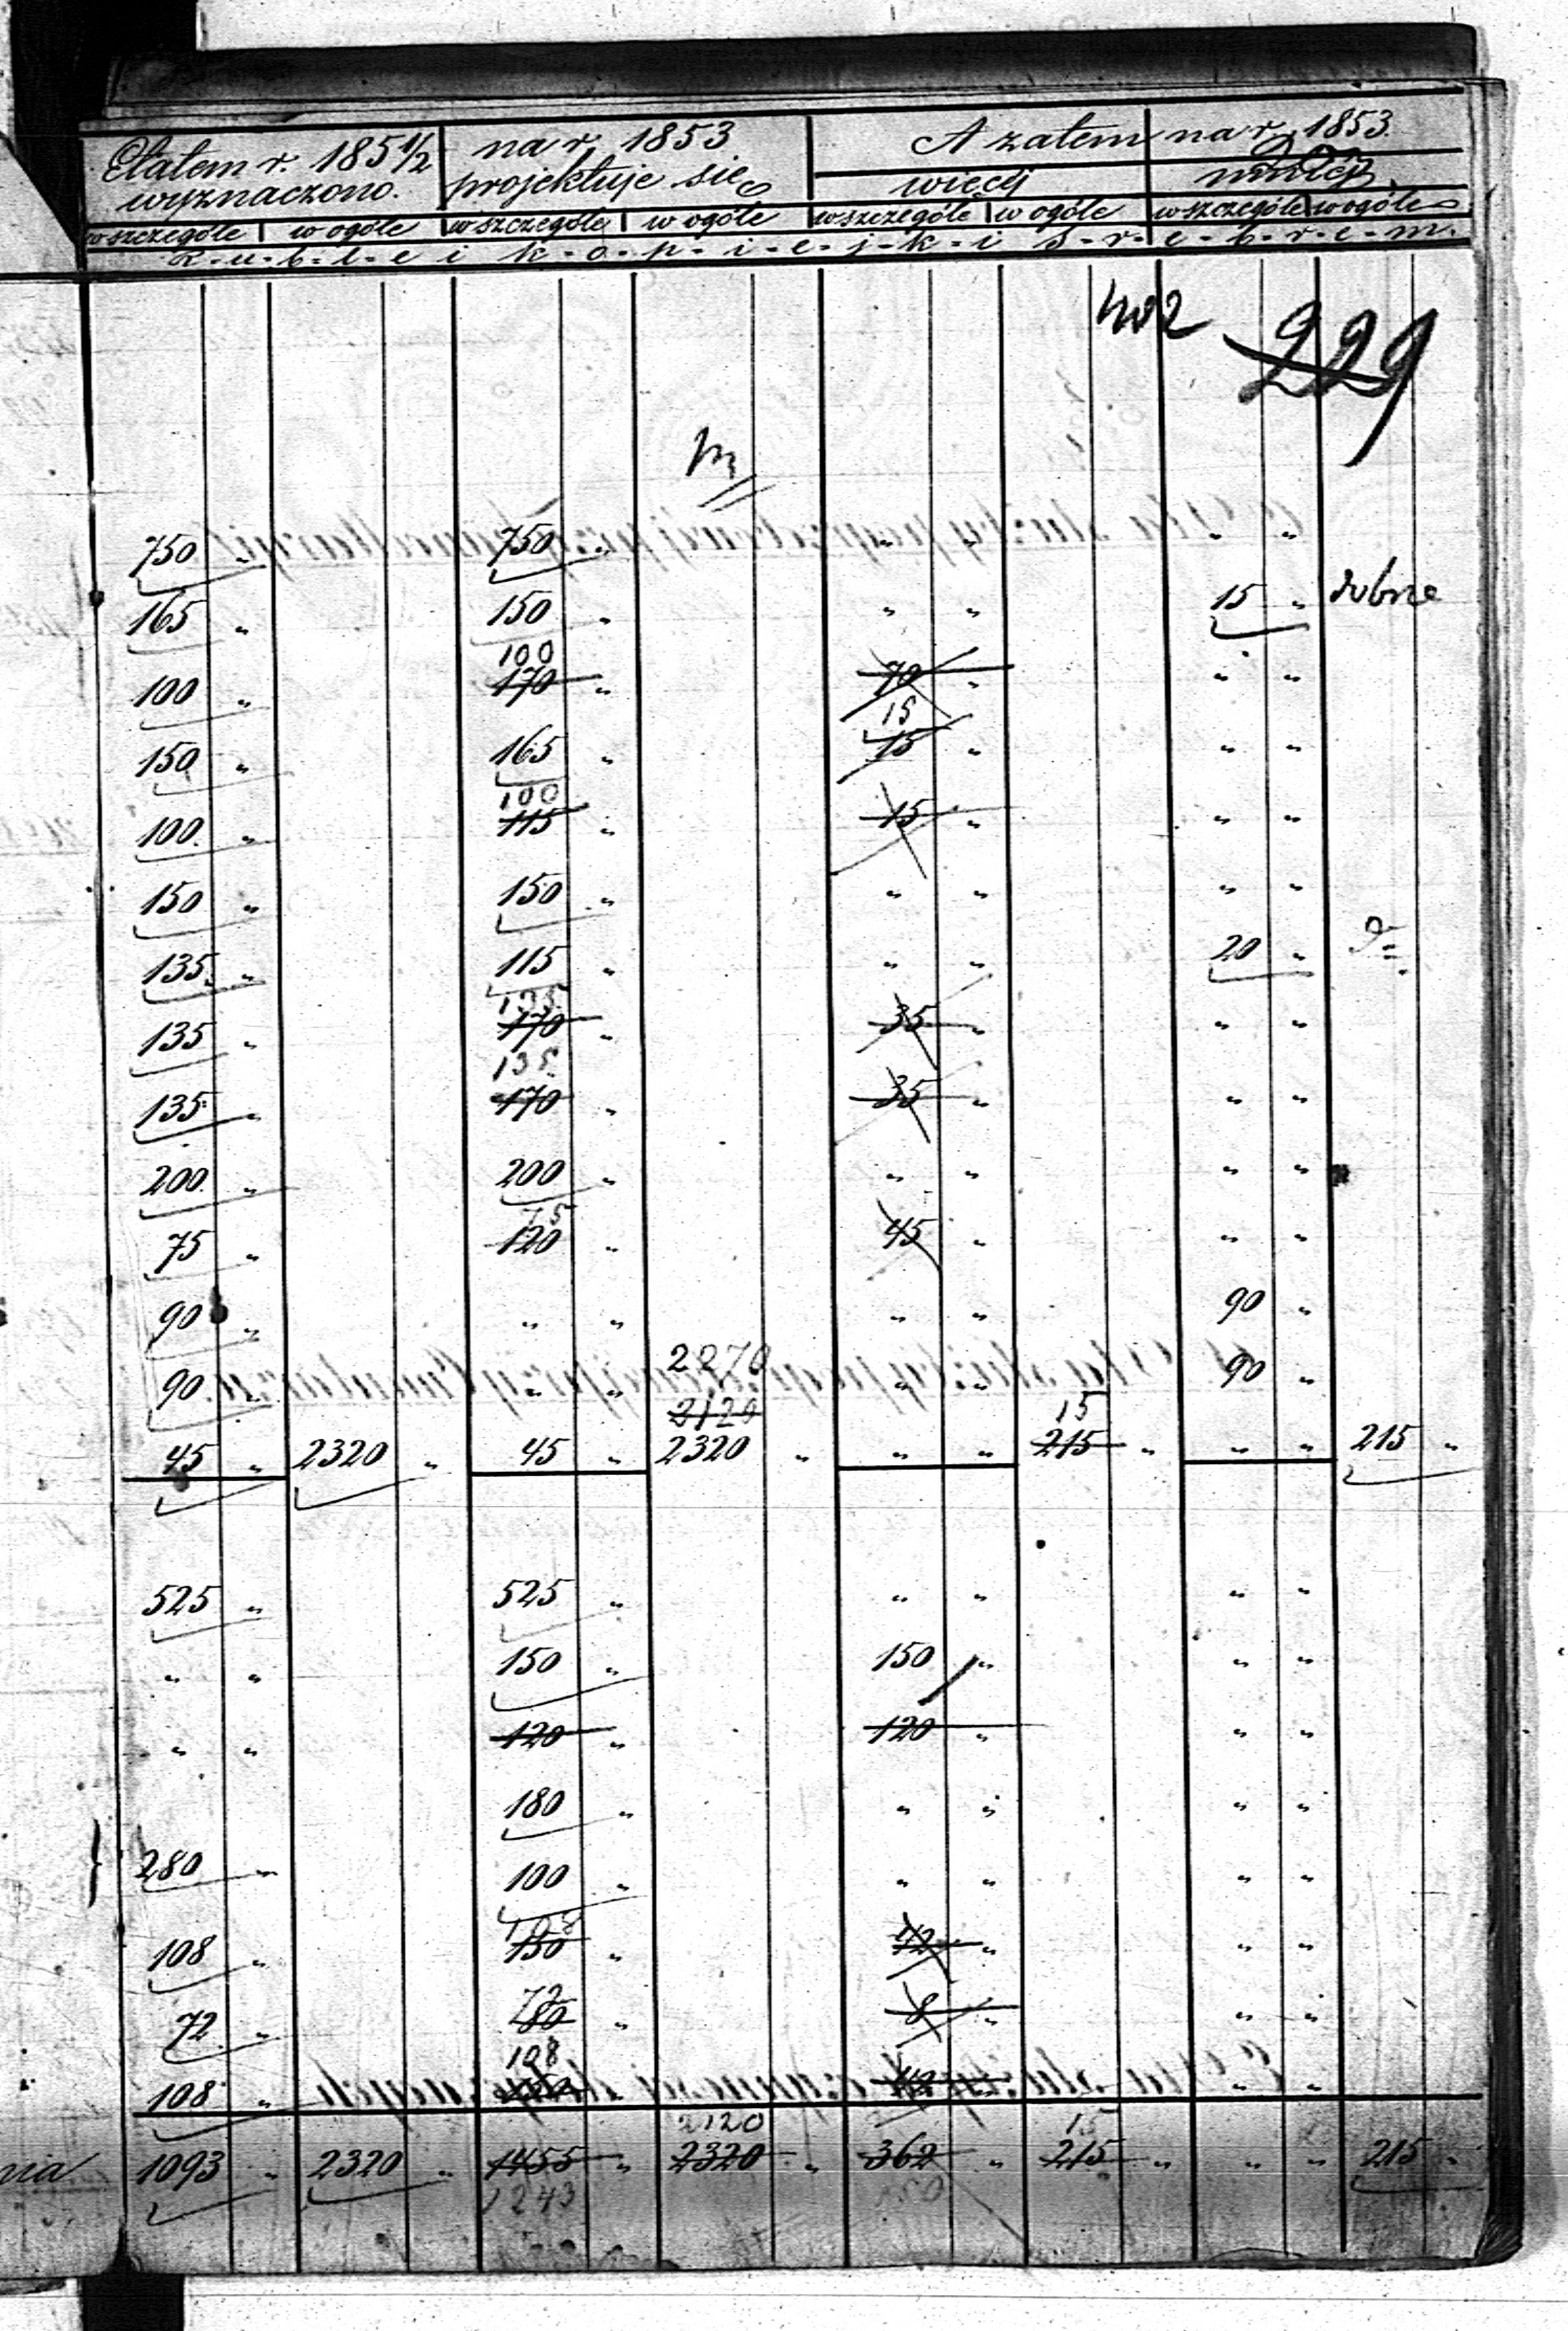 Etatem r. 185 1/2 na r. 1853 A zatem na r. 1853.
wyznaczono. projektuje się więcej mniej
w szczególe w ogóle w szczególe w ogóle w szczególe w ogóle w szczególe w ogóle
R-u-b-l-e i k-o-p-i-e-j-k-i S-r-e-b-r-e-m.
402 229
750 " 750 " " " " "
165 " 150 " " " 15 " dobrze
100
100 " 170 " 70 " " "
15
150 " 165 " 15 " " "
100
100. " 115 " 15 " " "
150 " 150 " " " " "
135. " 115 " " " 20 "
135
135 " 170 " 35 " " "
135.
135 " 170 " 35 " " "
200. " 200 " " " " "
75
75 " 120 " 45 " " "
90 " " " " " 90 "
2270
90. " " " " " 90 "
2120 15
45 " 2320 " 45 " 2320 " " " 215 " " " 215 "
525 " 525 " " " " "
" " 150 " 150 " " "
" " 120 " 120 " " "
180 " " " " "
280 " 100 " " " " "
108
108 " 150 " 42 " " "
72
72 " 80 " 8 " " "
108
108 " 150 " 42 " " "
2120 15
nia 1093 " 2320 " 1455 " 2320 " 362 " 215 " " " 215 "
1243 150